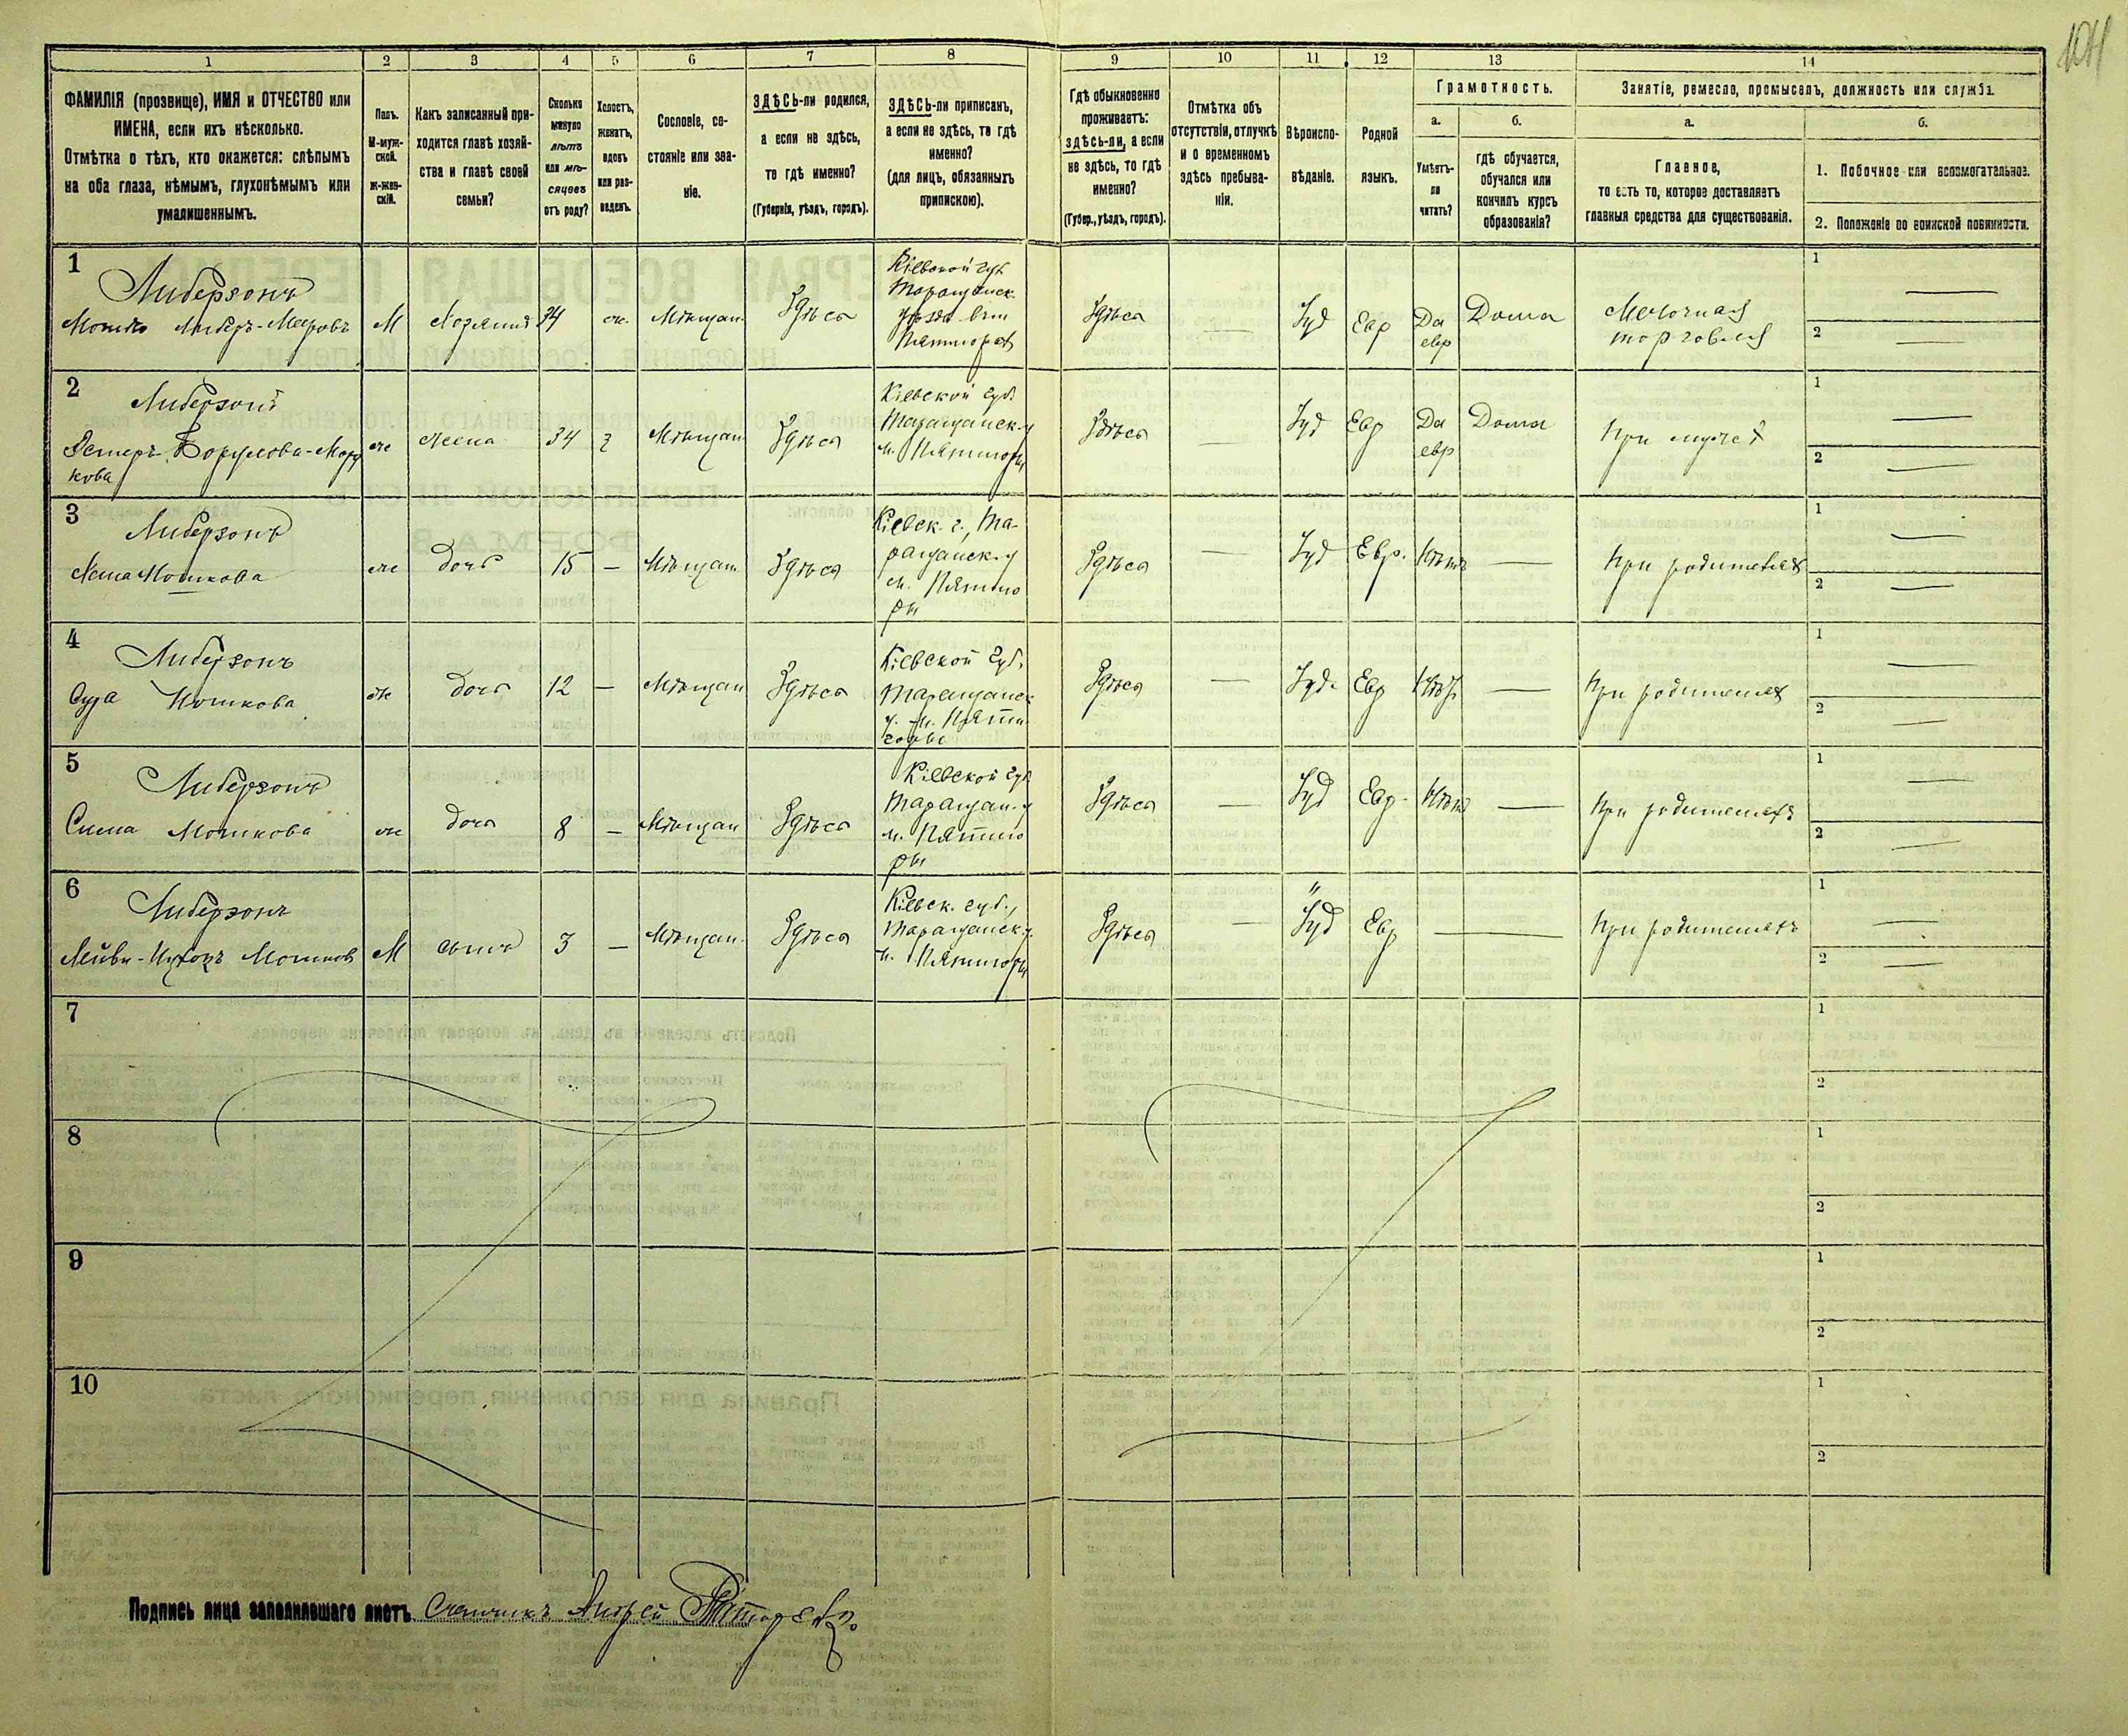 104
1
2
3
4
5
6
7
8
9
10
11
12
13
14
ФАМИЛІЯ (прозвище), ИМЯ и ОТЧЕСТВО или
ИМЕНА, если ихъ нѣсколько.
Отмѣтка о тѣхъ, кто окажется: слѣпымъ
на оба глаза, нѣмымъ, глухонѣмымъ или
умалишеннымъ.
Полъ.
М-муж-
ской.
Ж-жен-
скій.
Какъ записанный при-
ходится главѣ хозяй-
ства и главѣ своей
семьи?
Сколько
минуло
лѣтъ
или мѣ-
сяцевъ
отъ роду?
Холостъ,
женатъ,
вдовъ
или раз-
веденъ.
Сословіе, со-
стояніе или зва-
ніе.
ЗДѢСЬ-ли родился,
а если не здѣсь,
то гдѣ именно?
(Губернія, уѣздъ, городъ).
ЗДѢСЬ-ли приписанъ,
а если не здѣсь, то гдѣ
именно?
(для лицъ, обязанныхъ
припискою).
Гдѣ обыкновенно
проживаетъ:
здѣсь-ли, а если
не здѣсь, то гдѣ
именно?
(Губер., уѣздъ, городъ).
Отмѣтка объ
отсутствіи, отлучкѣ
и о временномъ
здѣсь пребыва-
ніи.
Вѣроиспо-
вѣданіе.
Родной
языкъ.
Грамотность.
а.
Умѣетъ-
ли
читать?
б.
гдѣ обучается,
обучался или
кончилъ курсъ
образованія?
Занятіе, ремесло, промыселъ, должность или служба.
а.
Главное,
то есть то, которое доставляетъ
главныя средства для существованія.
б.
1. Побочное или вспомогательное.
2. Положеніе по воинской повинности.
1
Либерзонъ
Мошко Либеръ-Меировъ
М
Хозяинъ
34
ж.
Мѣщан.
Здѣсь
Кіевской губ
Таращанск.
уѣзда
Пятигоръ
Здѣсь
—
Іуд
Евр
Да
евр
Дома
Мелочная
торговля
1 —
2 —
2
Либерзонъ
Эстеръ
кова
ж
жена
34
з
Мѣщан
Здѣсь
Кіевской губ
Таращанск. у
м. Пятигоры
Здѣсь
—
Іуд
Евр
Да
евр
Дома
При мужѣ
1 —
2 —
3
Либерзонъ
Мошкова
ж
дочь
15
—
Мѣщан
Здѣсь
Кіевск. г., Та-
ращанск. у
м. Пятиго
ры
Здѣсь
—
Іуд
Евр.
Нѣтъ
—
При родителяхъ
1 —
2 —
4
Либерзонъ
Сура Мошкова
ж
дочь
12
—
Мѣщан
Здѣсь
Кіевской губ.
Таращанск
у. м. Пяти
горы
Здѣсь
—
Іуд.
Евр
Нѣтъ
—
При родителях
1 —
2 —
5
Либерзонъ
Сима Мошкова
ж
дочь
8
—
Мѣщан
Здѣсь
Кіевской губ
Таращан. у
м. Пятиго
ры
Здѣсь
—
Іуд
Евр.
Нѣтъ
—
При родителяхъ
1 —
2 —
6
Либерзонъ
Мошков
М
сынъ
3
—
Мѣщан.
Здѣсь
Кіевск. губ.,
Таращанск. у.
м. Пятигоры
Здѣсь
—
Іуд
Евр
—
При родителяхъ
1 —
2 —
7
1
2
8
1
2
9
1
2
10
1
2
Подпись лица заполнившаго листъ Счетчикъ Андрей